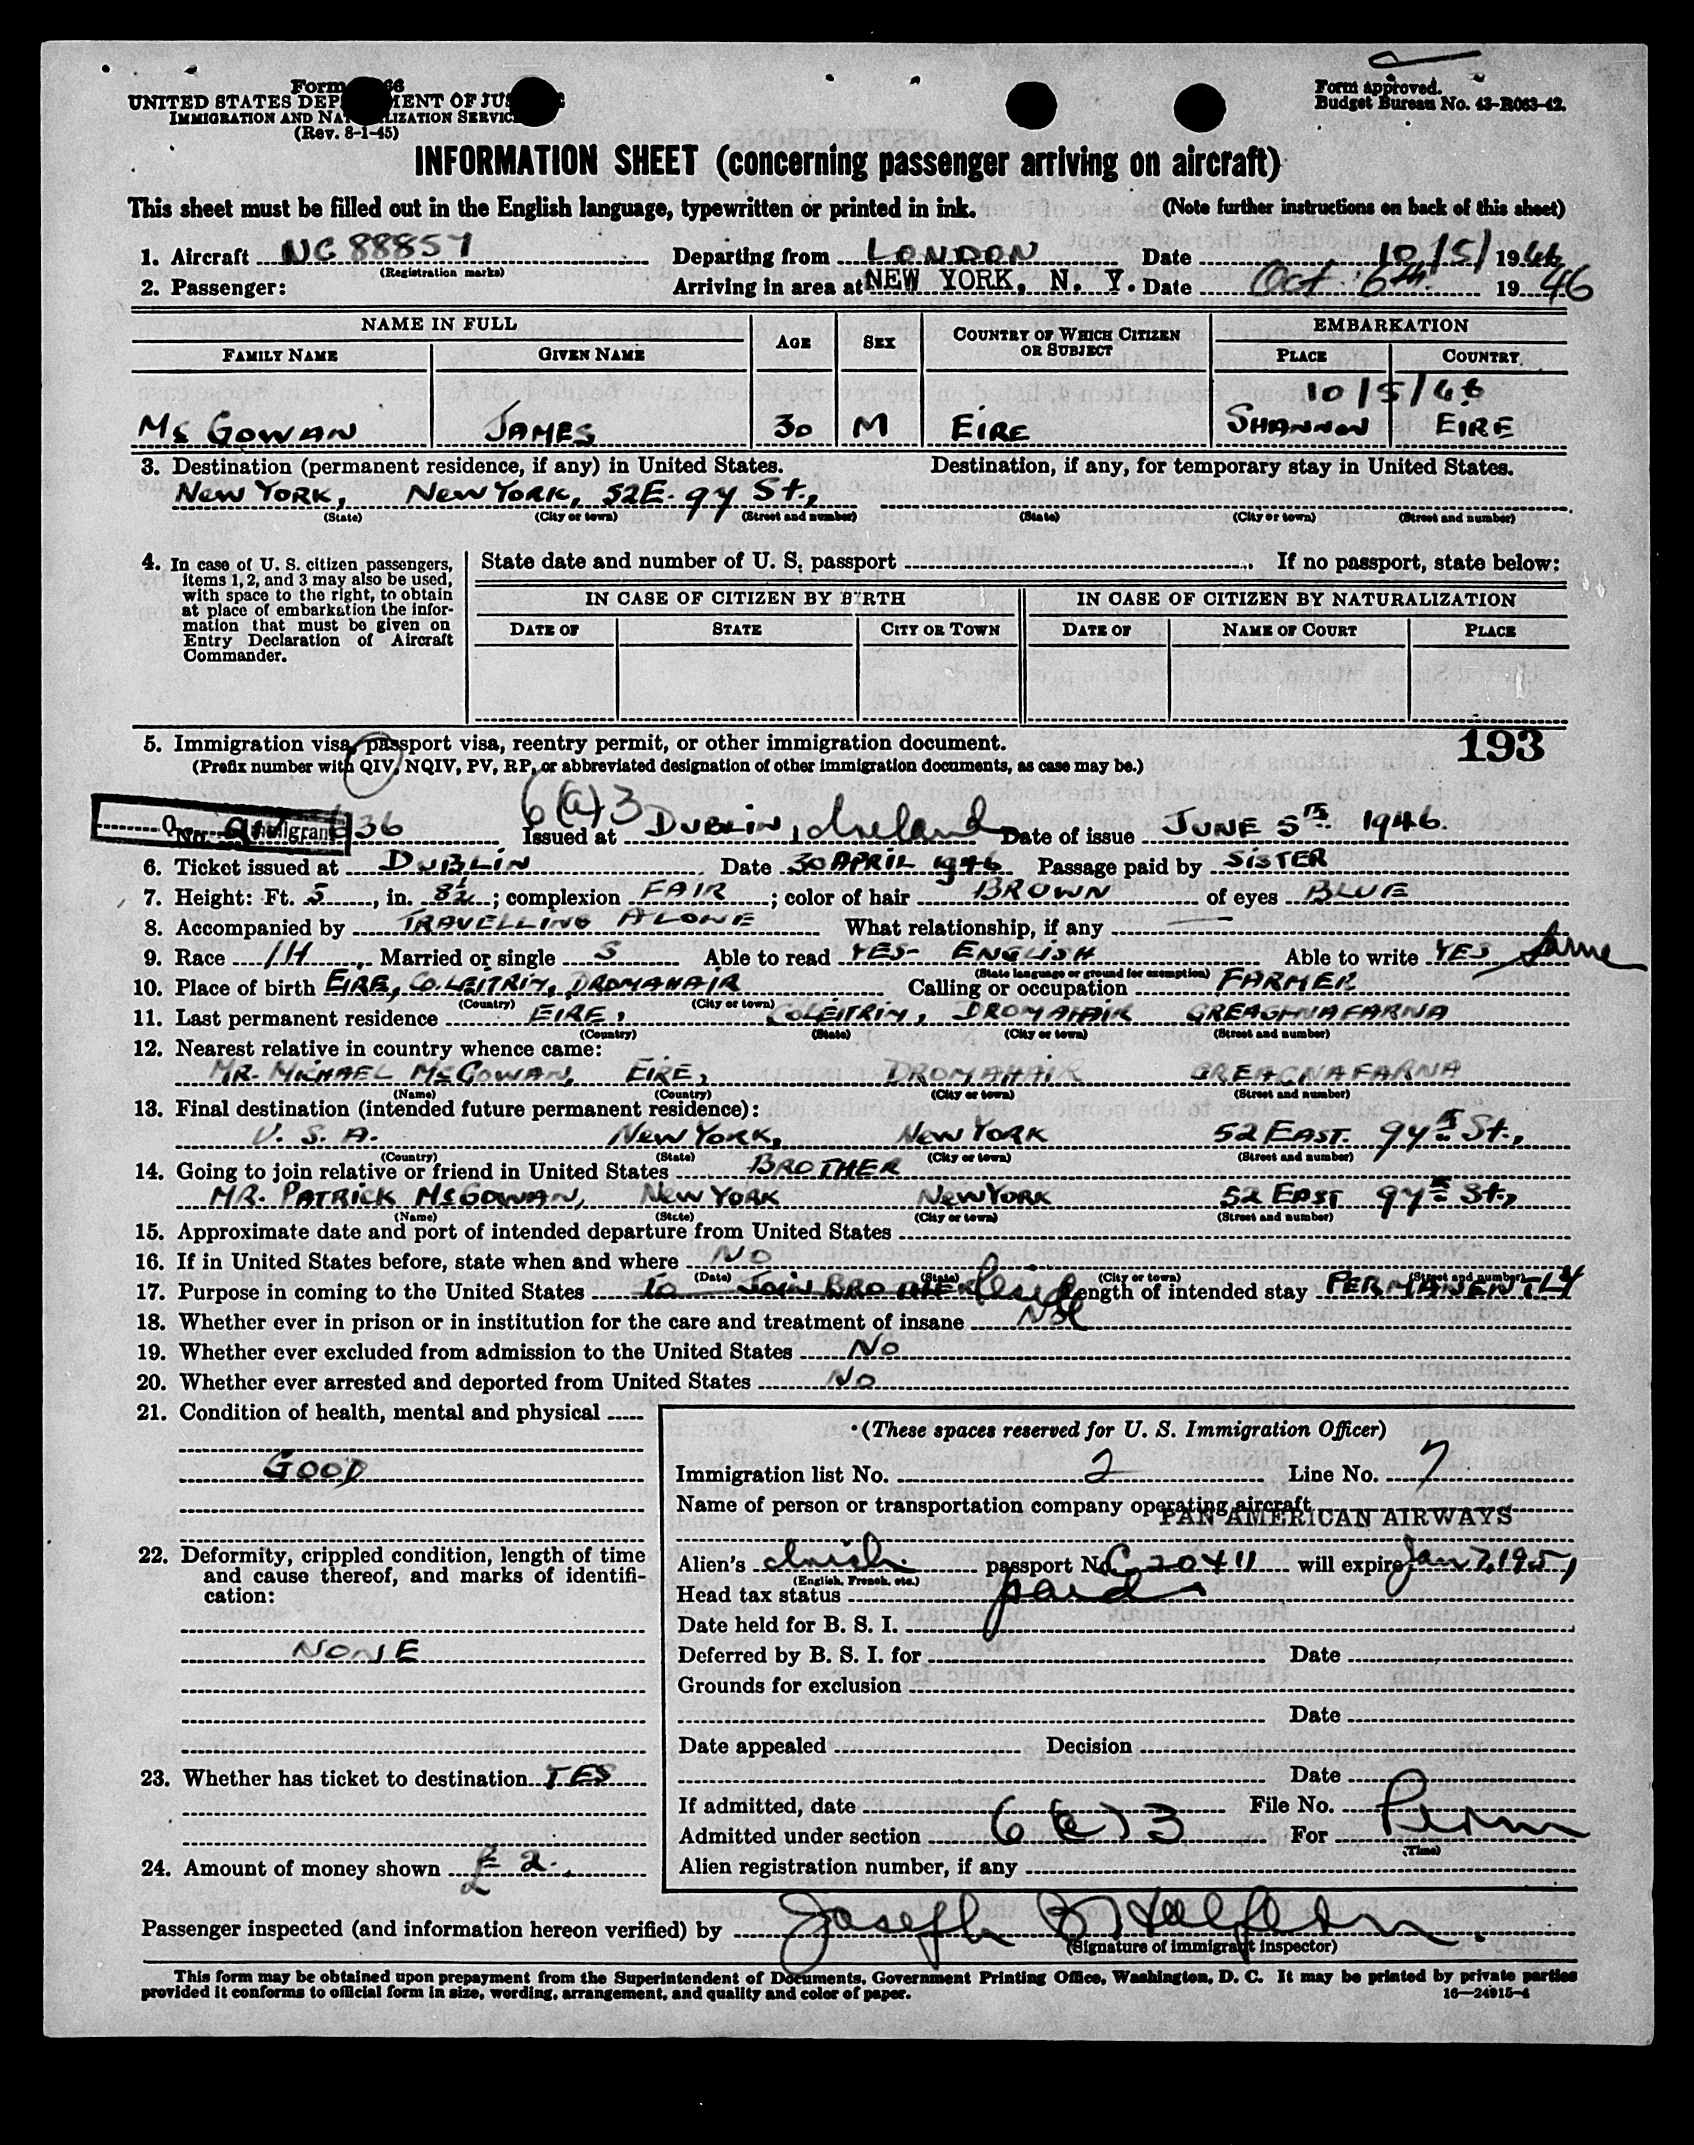 Form 66
UNITED STATES DEP MENT OF JUS
IMMIGRATION AND NAT LIZATION SERVIC
(Rev. 8-1-45)
Form approved.
Budget Bureau No. 43-R063-42.
INFORMATION SHEET (concerning passenger arriving on aircraft)
This sheet must be filled out in the English language, typewritten or printed in ink. (Note further instructions on back of this sheet)
1. Aircraft NC 88857 Departing from LONDON Date 10/5/ 1946
(Registration marks)
2. Passenger: Arriving in area at NEW YORK, N. Y. Date Oct. 6th 1946
NAME IN FULL AGE SEX COUNTRY OF WHICH CITIZEN OR SUBJECT EMBARKATION
FAMILY NAME GIVEN NAME PLACE COUNTRY
10/5/46
Mc GOWAN JAMES 30 M EIRE SHANNON EIRE
3. Destination (permanent residence, if any) in United States. Destination, if any, for temporary stay in United States.
NEW YORK, NEW YORK, 52E. 97 St.,
(State) (City or town) (Street and number) (State) (City or town) (Street and number)
4. In case of U. S. citizen passengers, items 1, 2, and 3 may also be used, with space to the right, to obtain at place of embarkation the information that must be given on Entry Declaration of Aircraft Commander.
State date and number of U. S. passport If no passport, state below:
IN CASE OF CITIZEN BY BIRTH IN CASE OF CITIZEN BY NATURALIZATION
DATE OF STATE CITY OR TOWN DATE OF NAME OF COURT PLACE
5. Immigration visa, passport visa, reentry permit, or other immigration document. 193
(Prefix number with QIV, NQIV, PV, RP, or abbreviated designation of other immigration documents, as case may be.)
6(a)3
No. 636 Issued at DUBLIN, Ireland Date of issue JUNE 5TH 1946.
6. Ticket issued at DUBLIN Date 30 APRIL 1946 Passage paid by SISTER
7. Height: Ft. 5, in. 8½; complexion FAIR; color of hair BROWN of eyes BLUE
8. Accompanied by TRAVELLING ALONE What relationship, if any —
9. Race IH Married or single S Able to read YES- ENGLISH Able to write YES Same
(State language or ground for exemption)
10. Place of birth EIRE, CO. LEITRIM, DROMAHAIR Calling or occupation FARMER
(Country) (City or town)
11. Last permanent residence EIRE, CO LEITRIM, DROMAHAIR GREAGHNAFARNA
(Country) (State) (City or town) (Street and number)
12. Nearest relative in country whence came:
MR. MICHAEL McGOWAN, EIRE, DROMAHAIR GREAGNAFARNA
(Name) (Country) (City or town) (Street and number)
13. Final destination (intended future permanent residence):
U. S. A. NEW YORK, NEW YORK 52 EAST. 97th St.,
(Country) (State) (City or town) (Street and number)
14. Going to join relative or friend in United States BROTHER
MR. PATRICK McGOWAN, NEW YORK NEW YORK 52 EAST 97th St.,
(Name) (State) (City or town) (Street and number)
15. Approximate date and port of intended departure from United States
16. If in United States before, state when and where NO
(Date) (State) (City or town) (Street and number)
17. Purpose in coming to the United States TO JOIN BROTHER Reside Length of intended stay PERMANENTLY
18. Whether ever in prison or in institution for the care and treatment of insane No
19. Whether ever excluded from admission to the United States No
20. Whether ever arrested and deported from United States No
21. Condition of health, mental and physical
GOOD
22. Deformity, crippled condition, length of time and cause thereof, and marks of identification:
NONE
23. Whether has ticket to destination YES
24. Amount of money shown £ 2.
(These spaces reserved for U. S. Immigration Officer)
Immigration list No. 2 Line No. 7
Name of person or transportation company operating aircraft
PAN AMERICAN AIRWAYS
Alien's Irish passport No. C 20411 will expire Jan 7, 1951
(English, French, etc.)
Head tax status paid
Date held for B. S. I.
Deferred by B. S. I. for Date
Grounds for exclusion
Date
Date appealed Decision
Date
If admitted, date File No.
Admitted under section 6(a)3 For Perm
(Time)
Alien registration number, if any
Passenger inspected (and information hereon verified) by Joseph B Halpern
(Signature of immigrant inspector)
This form may be obtained upon prepayment from the Superintendent of Documents, Government Printing Office, Washington, D. C. It may be printed by private parties
provided it conforms to official form in size, wording, arrangement, and quality and color of paper. 16—24915-4